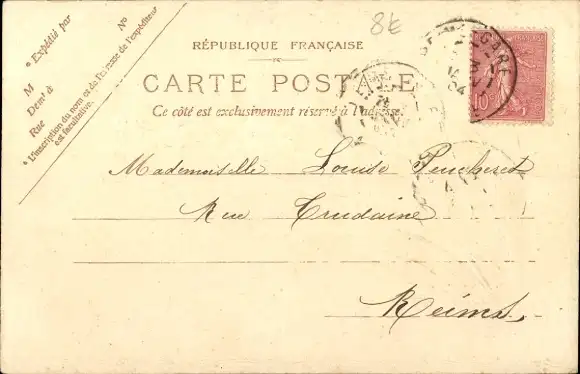 8€
* Expédié par
M
Demt à
Rue
N°
* L'inscription du nom et de l'adresse de l'expéditeur
est facultative.
RÉPUBLIQUE FRANÇAISE
CARTE POSTALE
Ce côté est exclusivement réservé à l'adresse.
GARE
04
10
Mademoiselle Louise
Rue Trudaine
Reims.